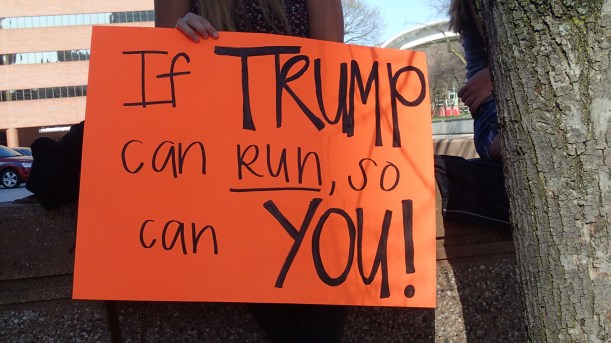 If TRUMP
can RUN, so
can YOU!